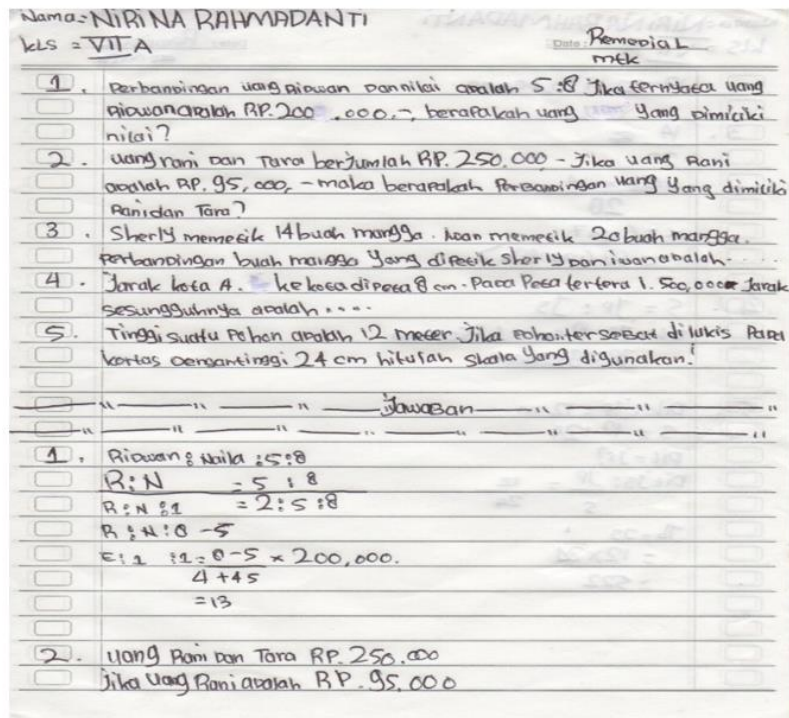 Nama: NIRINA RAHMADANTI
kLS = VII A
Date: Remedial
mtk
1. Perbandingan uang Ridwan dan nilai adalah 5:8 Jika ternyata uang
Ridwan adalah RP. 200.000,-, berapakah uang yang dimiliki
nilai?
2. uang rani dan Tara berjumlah RP. 250.000 - Jika uang Rani
adalah RP. 95,000, - maka berapakah Perbandingan uang yang dimiliki
Rani dan Tara?
3. Sherly memetik 14 buah mangga. Iwan memetik 20 buah mangga.
Perbandingan buah mangga yang dipetik sherly dan iwan adalah.....
4. Jarak kota A. ke kota di peta 8 cm. Pada Peta tertera 1. 500,000 Jarak
sesungguhnya adalah ....
5. Tinggi suatu Pohon adalah 12 meter. Jika pohon tersebut di lukis Pada
kertas dengan tinggi 24 cm hitulah skala yang digunakan!
Jawaban
1. Ridwan : Naila : 5:8
R:N = 5 : 8
R:N:1 = 2:5:8
R:N:8-5
× 200,000.
4+45
=13
2. uang Rani dan Tara RP. 250.000
Jika uang Rani adalah RP. 95.000